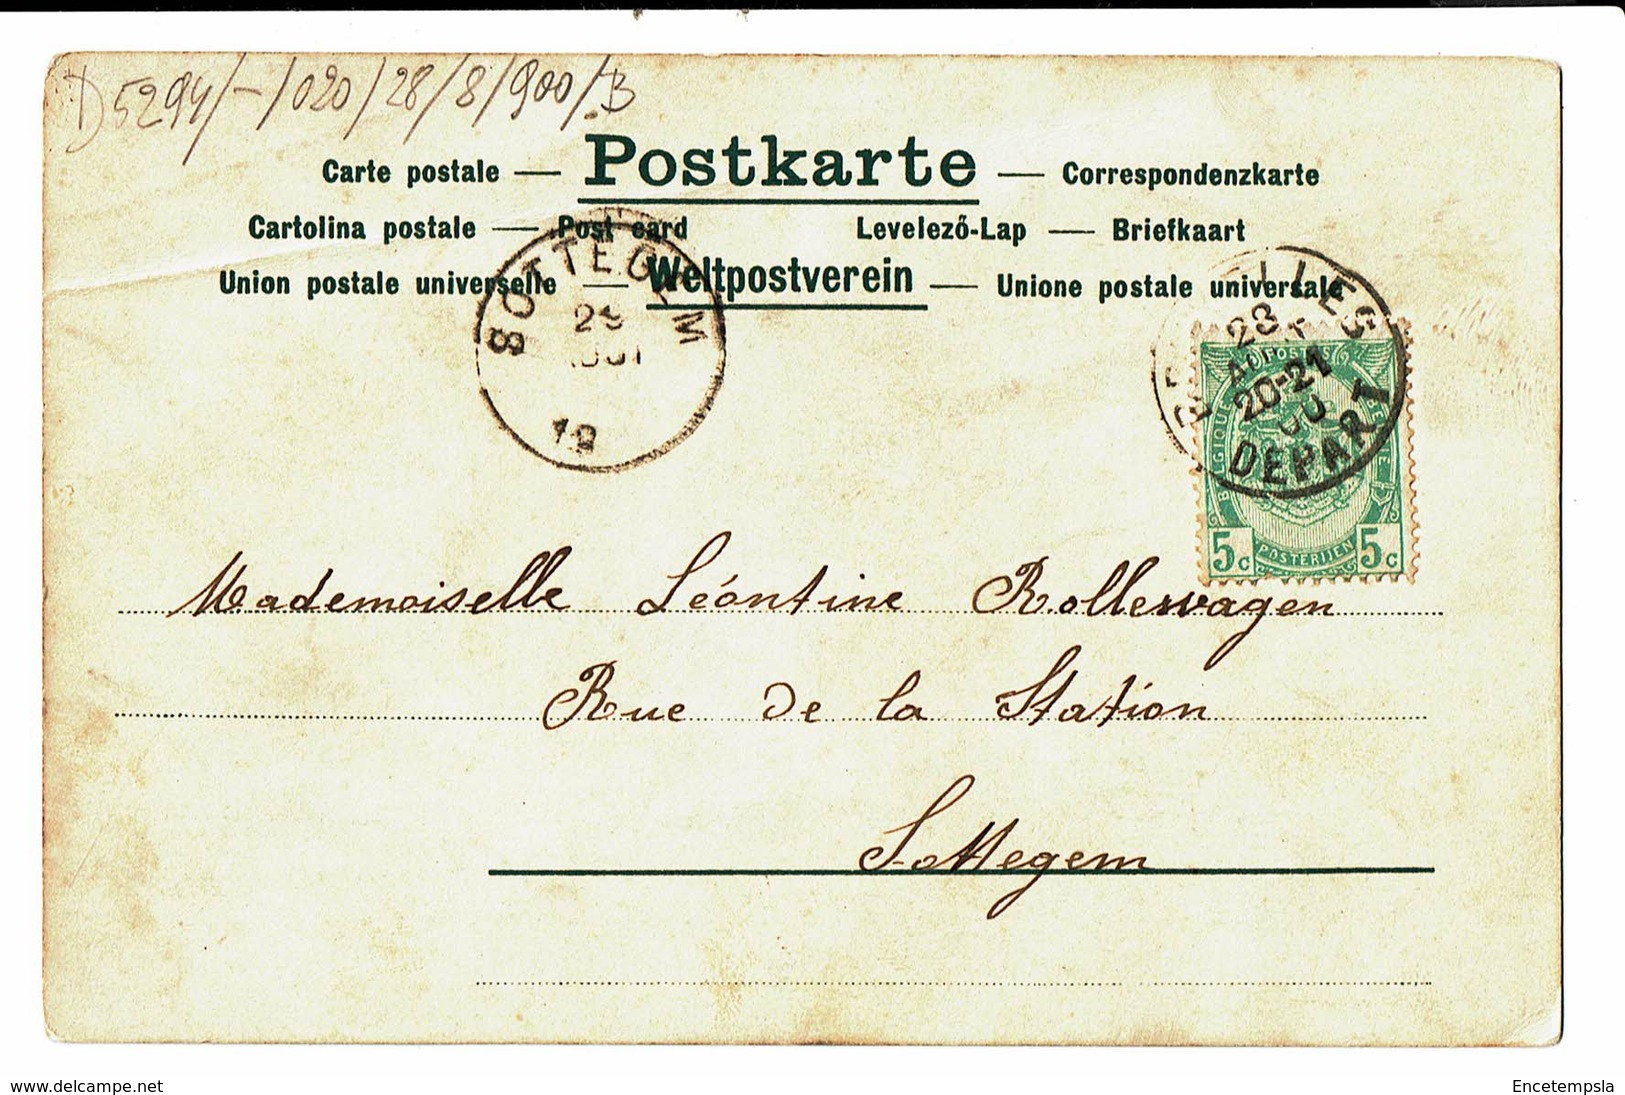 D5294/-/020/28/8/900/B
Carte postale — Postkarte — Correspondenzkarte
Cartolina postale — Post card Levelező-Lap — Briefkaart
Union postale universelle — Weltpostverein — Unione postale universale
SOTTEGEM
19
28
AOUT
20-21
00
DEPART
BELGIQUE
POSTERIJEN
5c 5c
Mademoiselle Léontine Rollewagen
Rue de la Station
Sottegem
www.delcampe.net
Encetempsla